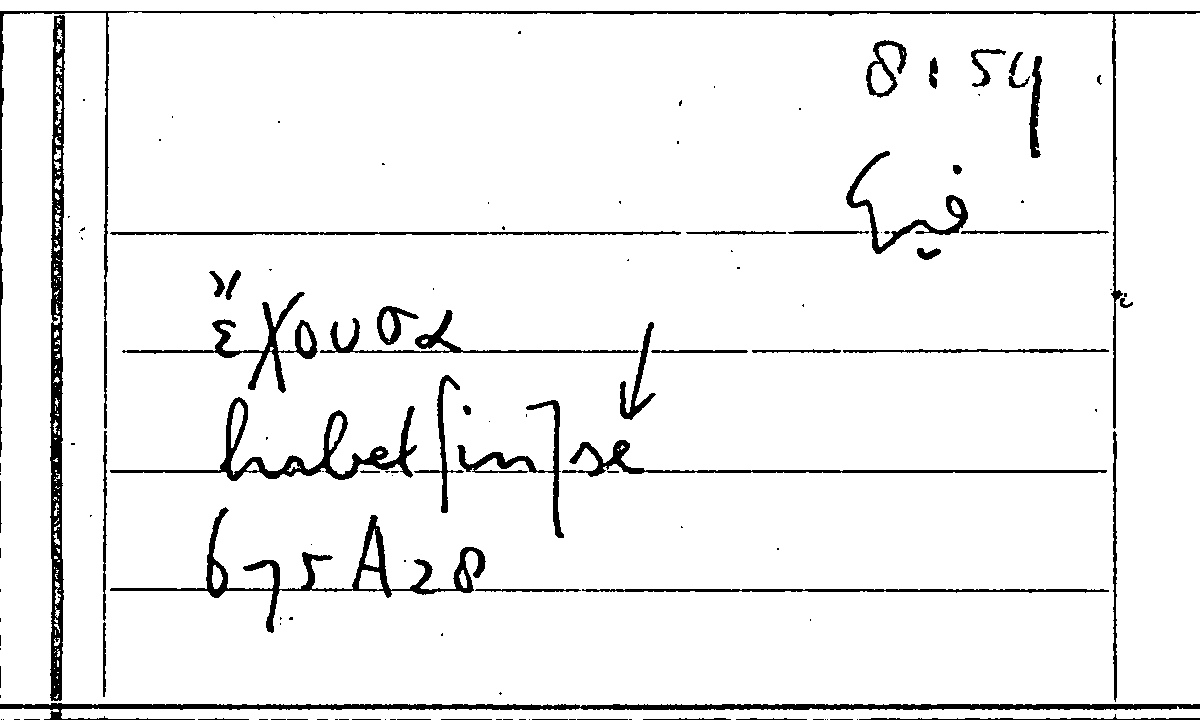 8 : 54
ἔχουσα
habet [in] se ↓
675A28